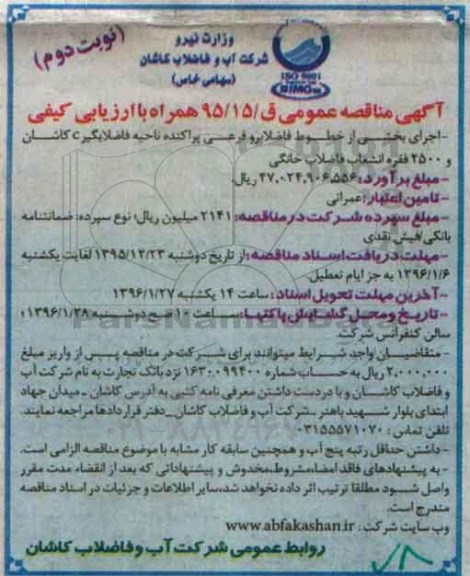 (نوبت دوم)
وزارت نیرو
شرکت آب و فاضلاب کاشان
(سهامی خاص)
ISO 9001
آگهی مناقصه عمومی ق/۹۵/۱۵ همراه با ارزیابی کیفی
-اجرای بخشی از خطوط فاضلابرو فرعی پراکنده ناحیه فاضلابگیر c کاشان
و ۲۵۰۰ فقره انشعاب فاضلاب خانگی
-مبلغ برآورد: ۴۷،۰۲۴،۹۰۶،۵۵۶ ریال.
-تامین اعتبار: عمرانی
-مبلغ سپرده شرکت در مناقصه: ۲۱۴۱ میلیون ریال؛ نوع سپرده: ضمانتنامه
بانکی/فیش نقدی
-مهلت دریافت اسناد مناقصه: از تاریخ دوشنبه ۱۳۹۵/۱۲/۲۳ لغایت یکشنبه
۱۳۹۶/۱/۶ به جز ایام تعطیل.
-آخرین مهلت تحویل اسناد: ساعت ۱۴ یکشنبه ۱۳۹۶/۱/۲۷
-تاریخ و محل گشایش پاکتها: ساعت ۱۰ صبح دوشنبه ۱۳۹۶/۱/۲۸ ؛
سالن کنفرانس شرکت
-متقاضیان واجد شرایط میتوانند برای شرکت در مناقصه پس از واریز مبلغ
۲,۰۰۰,۰۰۰ ریال به حساب شماره ۱۶۳۰۰۹۹۴۰۰ نزد بانک تجارت به نام شرکت آب
و فاضلاب کاشان و با در دست داشتن معرفی نامه کتبی به آدرس کاشان -میدان جهاد
ابتدای بلوار شهید باهنر -شرکت آب و فاضلاب کاشان -دفتر قراردادها مراجعه نمایند.
تلفن تماس: ۰۳۱۵۵۵۷۱۰۷۰
-داشتن حداقل رتبه پنج آب و همچنین سابقه کار مشابه با موضوع مناقصه الزامی است.
-به پیشنهادهای فاقد امضاء،مشروط،مخدوش و پیشنهاداتی که بعد از انقضاء مدت مقرر
واصل شود مطلقا ترتیب اثر داده نخواهد شد،سایر اطلاعات و جزئیات در اسناد مناقصه
مندرج است.
وب سایت شرکت: www.abfakashan.ir
روابط عمومی شرکت آب و فاضلاب کاشان